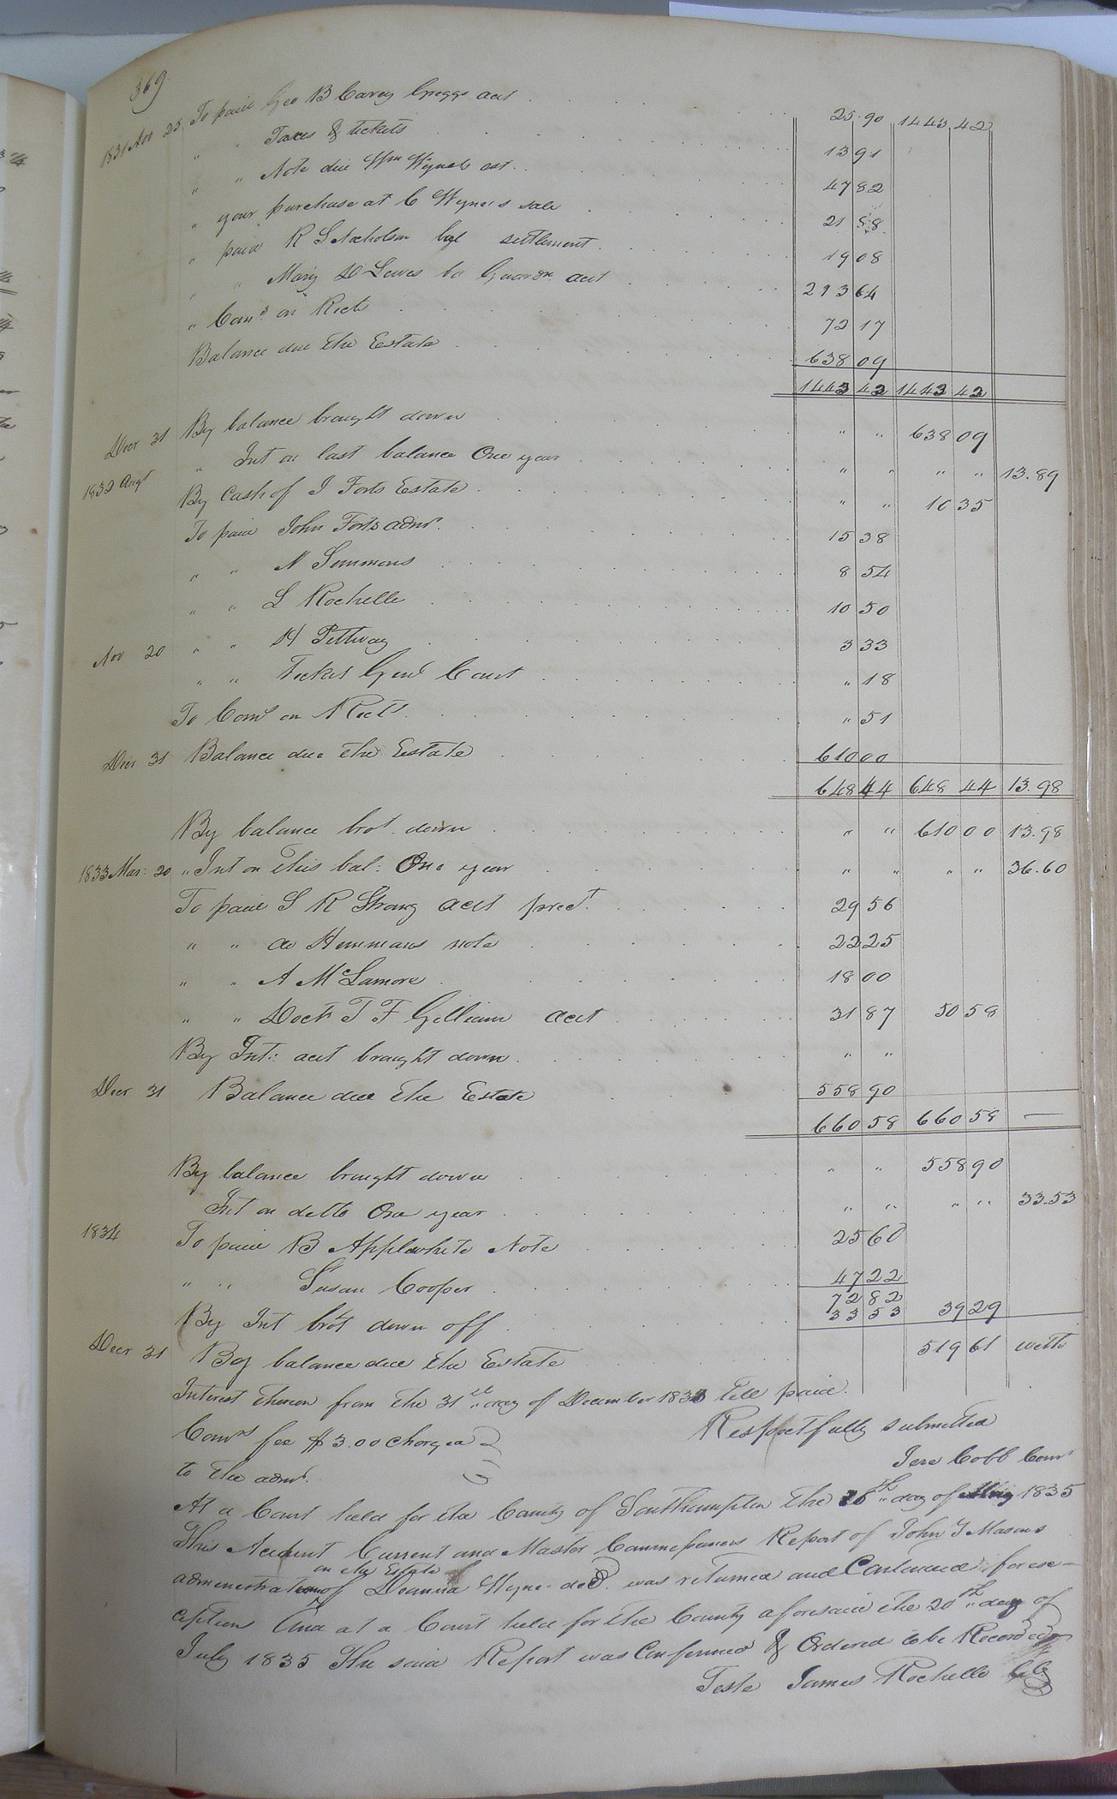 369
1831 Nov 25 To paid Geo B Carey Greggs acct 25 90 1443 42
" " Taxes & tickets 13 91
" " Note due Wm Wynels est. 47 82
" your purchase at C Wynes sale 21 88
" paid R S Nicholson bal settlement 19 08
" " Mary D Lewes by Guardn acct 293 64
" Coms on Rects 72 17
Balance due the Estate 638 09
1443 42 1443 42
Decr 31 By balance brought down " " 638 09
" Int on last balance One year " " " " 13.89
1832 Augt By Cash of J Forts Estate " " 10 35
To paid John Forts admr. 15 38
" " N Simmons 8 54
" " L Rochelle 10 50
Nov 20 " " H Pettway 3 33
" " Ticket Genl Court " 18
To Coms on Rects " 51
Decr 31 Balance due the Estate 610 00
648 44 648 44 13.98
By balance brot. down " " 610 00 13.98
1833 Mar: 20 " Int on this bal: One year " " " " 36.60
To paid S R Strong acct prect. 29 56
" " do Hemmans note 22 25
" " A McLamore 18 00
" " Doct T F Gilliam acct 31 87 50 58
By Int: acct brought down " "
Decr 31 Balance due the Estate 558 90
660 58 660 58 —
By balance brought down " " 558 90
Int on ditto One year " " " " 33.53
1834 To paid B Applewhite Note 25 60
" " Susan Cooper 47 22
72 82
By Int brot down off 33 53 39 29
Decr 31 By balance due the Estate 519 61 with
Interest thereon from the 31st day of December 1833 till paid.
Respectfully submitted
Coms fee $3.00 charged
Jere Cobb Comr
to the admr.
At a Court held for the County of Southampton the 16th day of May 1835
This Account Current and Master Commissioners Report of John Y Masons
on the Estate
administration of Deanna Wyne decd. was returned and Continued for ex-
ception And at a Court held for the County aforesaid the 20th day of
July 1835 The said Report was Confirmed & Ordered to be Recorded
Teste James Rochelle Clk